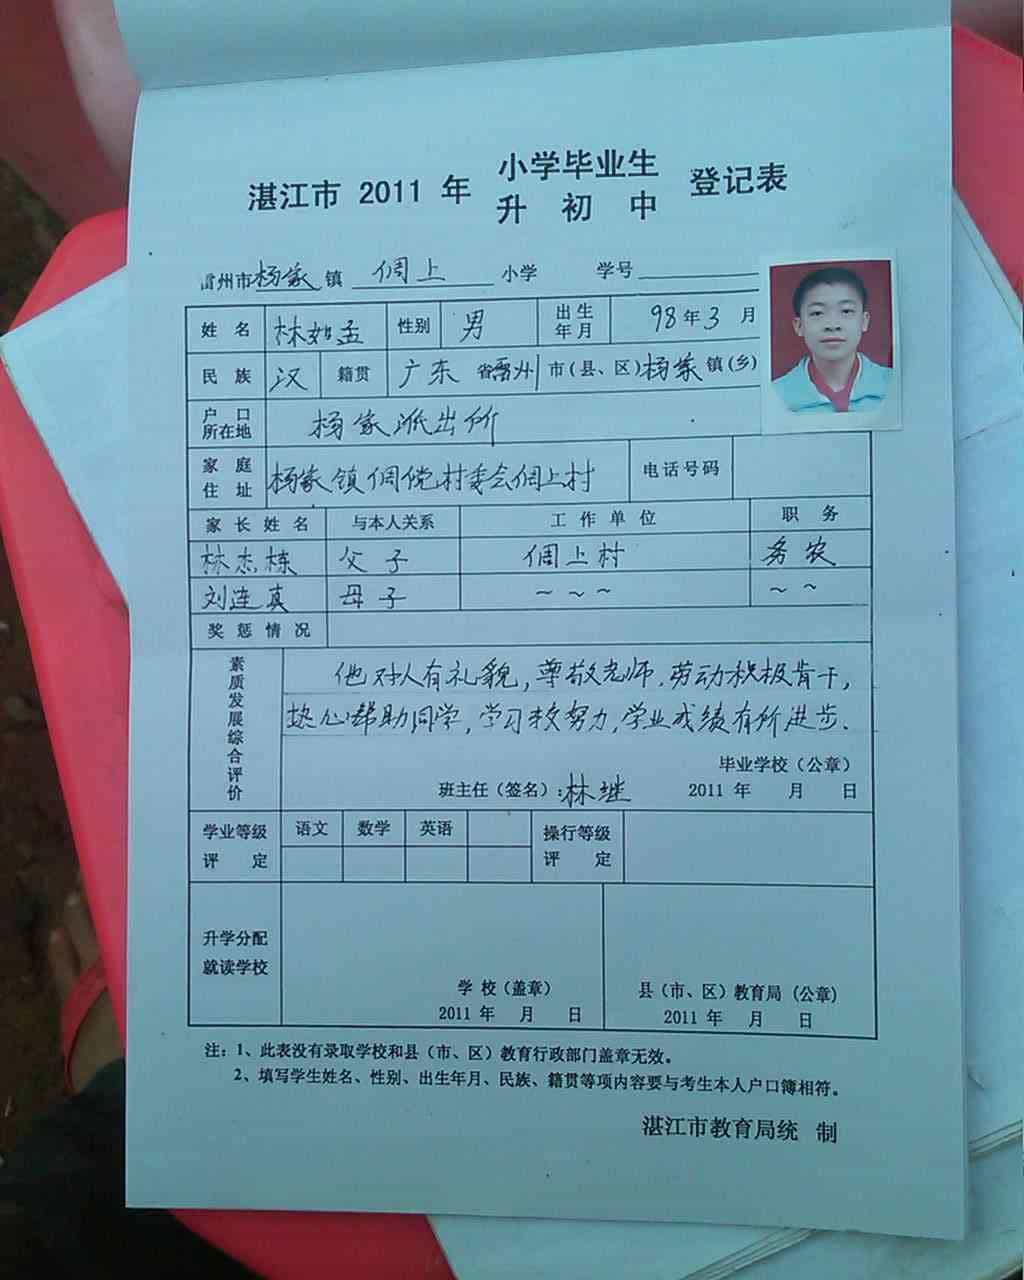 湛江市 2011 年 小学毕业生 升初中 登记表
雷州市杨家镇 倜上 小学 学号
姓名 林如孟 性别 男 出生年月 98年3月
民族 汉 籍贯 广东省雷州市(县、区)杨家镇(乡)
户口所在地 杨家派出所
家庭住址 杨家镇倜傥村委会倜上村 电话号码
家长姓名 与本人关系 工作单位 职务
林杰栋 父子 倜上村 务农
刘连真 母子 ~ ~ ~ ~ ~
奖惩情况
素质发展综合评价
他对人有礼貌,尊敬老师.劳动积极肯干,
热心帮助同学,学习较努力,学业成绩有所进步.
毕业学校(公章)
班主任(签名):林继 2011 年 月 日
学业等级评定 语文 数学 英语 操行等级评定
升学分配就读学校
学校(盖章) 县(市、区)教育局(公章)
2011 年 月 日 2011 年 月 日
注:1、此表没有录取学校和县(市、区)教育行政部门盖章无效。
2、填写学生姓名、性别、出生年月、民族、籍贯等项内容要与考生本人户口簿相符。
湛江市教育局统 制